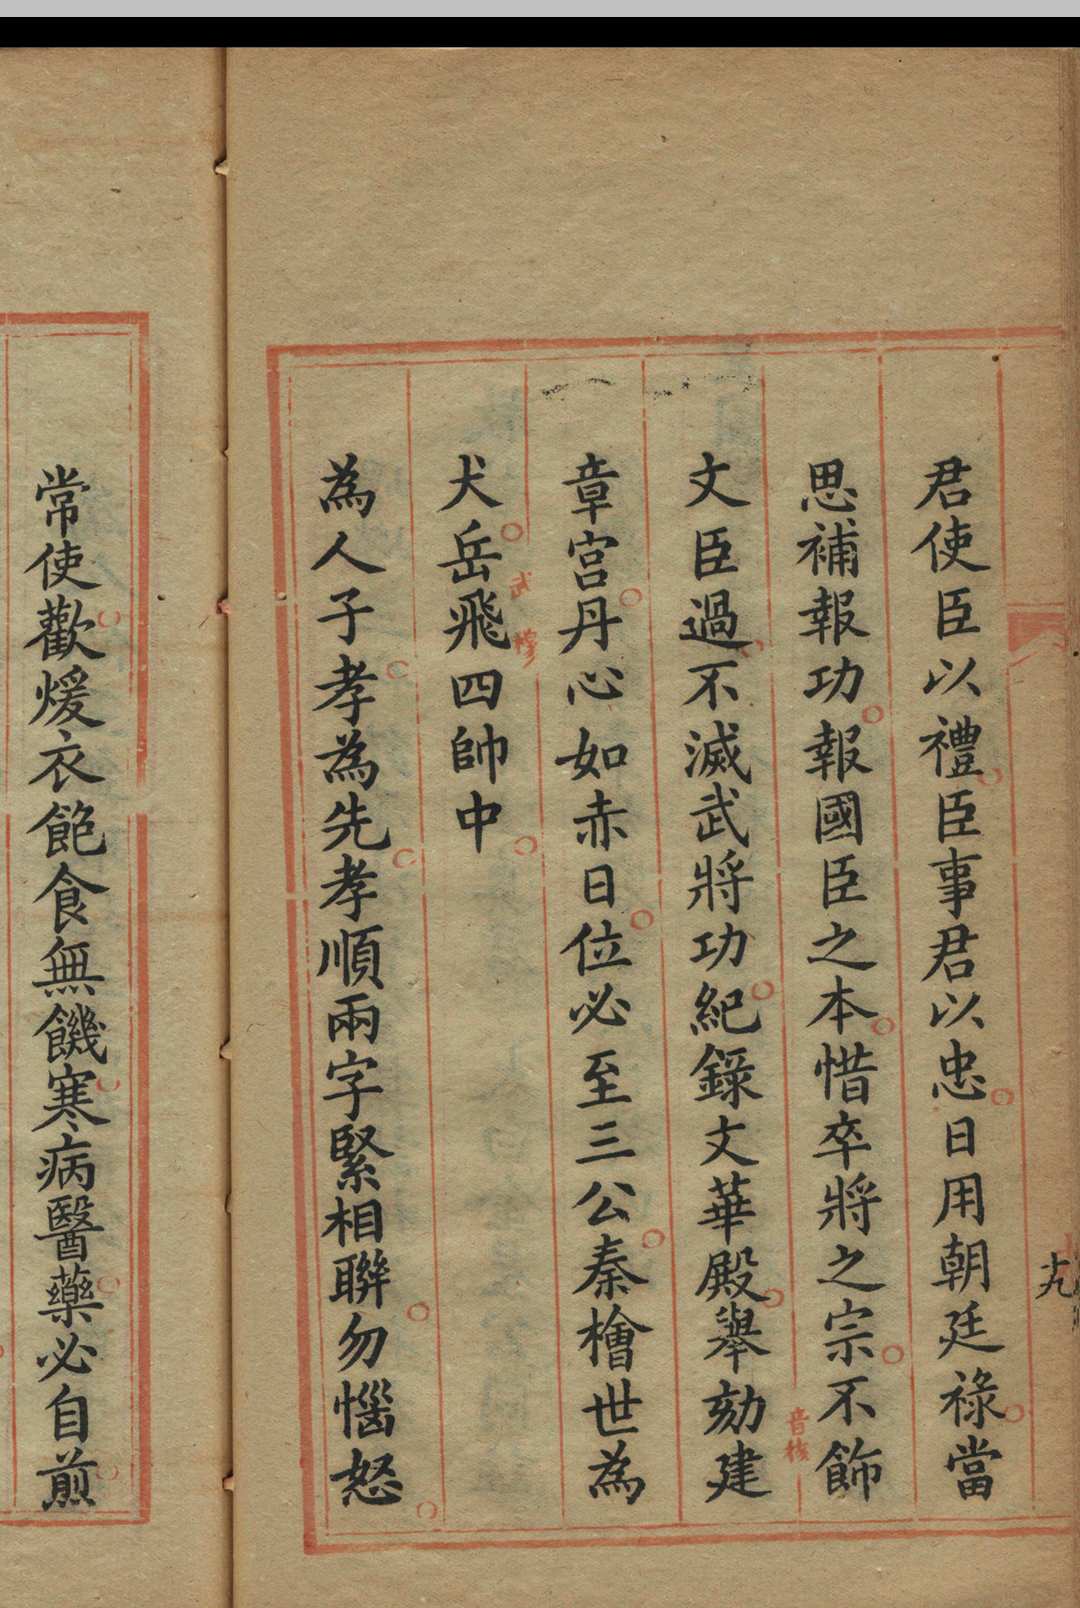 君使臣以禮臣事君以忠日用朝廷祿當
思補報功報國臣之本惜卒將之宗不飾
文臣過不滅武將功紀錄文華殿舉劾建
音核
章宮丹心如赤日位必至三公秦檜世為
犬岳飛四帥中
武穆
為人子孝為先孝順兩字緊相聯勿惱怒
常使歡煖衣飽食無饑寒病醫藥必自煎
十九